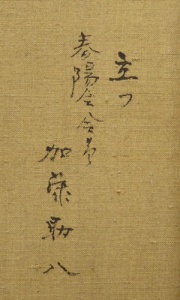 立つ
春陽会会員
加藤勁八